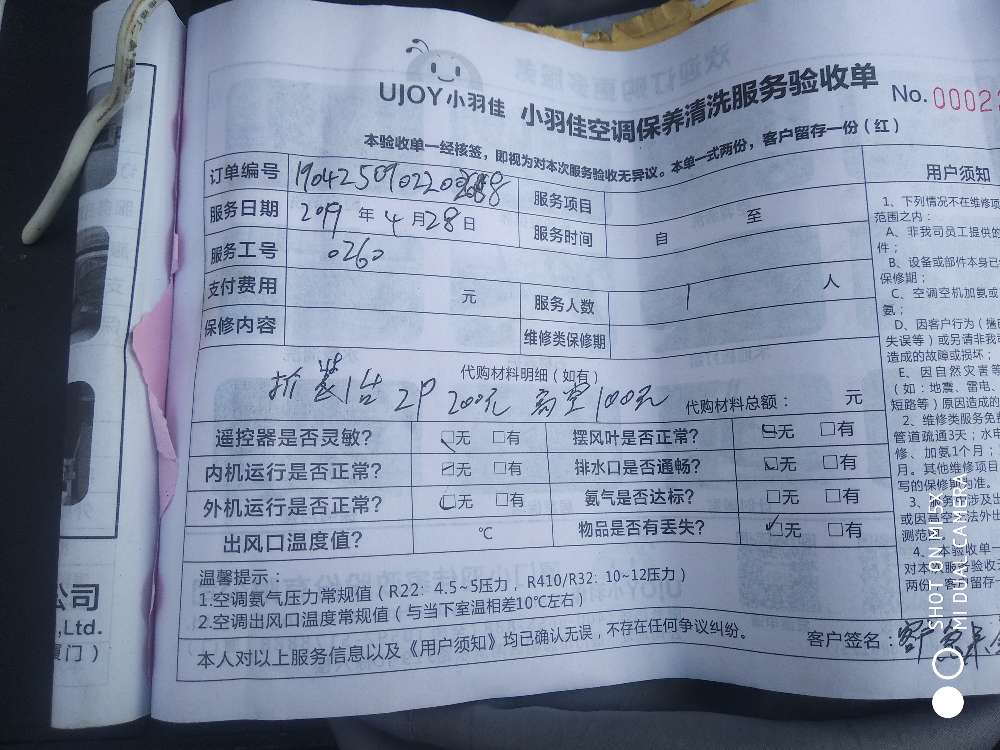 UJOY小羽佳 小羽佳空调保养清洗服务验收单 No.0002
本验收单一经核签，即视为对本次服务验收无异议。本单一式两份，客户留存一份（红）
订单编号 服务项目
服务日期 2019 年 4 月 28 日 服务时间 自 至
服务工号 0260
支付费用 元 服务人数 1 人
保修内容 维修类保修期
代购材料明细（如有）
1台 2P 200元 高空100元 代购材料总额： 元
遥控器是否灵敏? □无 □有 摆风叶是否正常? □无 □有
内机运行是否正常? □无 □有 排水口是否通畅? □无 □有
外机运行是否正常? □无 □有 氨气是否达标? □无 □有
出风口温度值? ℃ 物品是否有丢失? □无 □有
温馨提示：
1.空调氨气压力常规值（R22：4.5~5压力，R410/R32：10~12压力）
2.空调出风口温度常规值（与当下室温相差10℃左右）
本人对以上服务信息以及《用户须知》均已确认无误，不存在任何争议纠纷。
客户签名：
用户须知
1、下列情况不在维修项
范围之内：
A、非我司员工提供的
件；
B、设备或部件本身已
保修期；
C、空调空机加氨或
氨；
D、因客户行为（
失误等）或另请非我
造成的故障或损坏；
E、因自然灾害等
（如：地震、雷电、
短路等）原因造成的
2、维修类服务免
管道疏通3天；水电
修、加氨1个月；
月。其他维修项目
写的保修期为准。
3、服务中涉及
或因高空作法外出
测范
4、本验收单一
对本次服务验收无
两份，客户留存一
公司
,Ltd.
厦门）
SHOT ON MI 5X
MI DUAL CAMERA